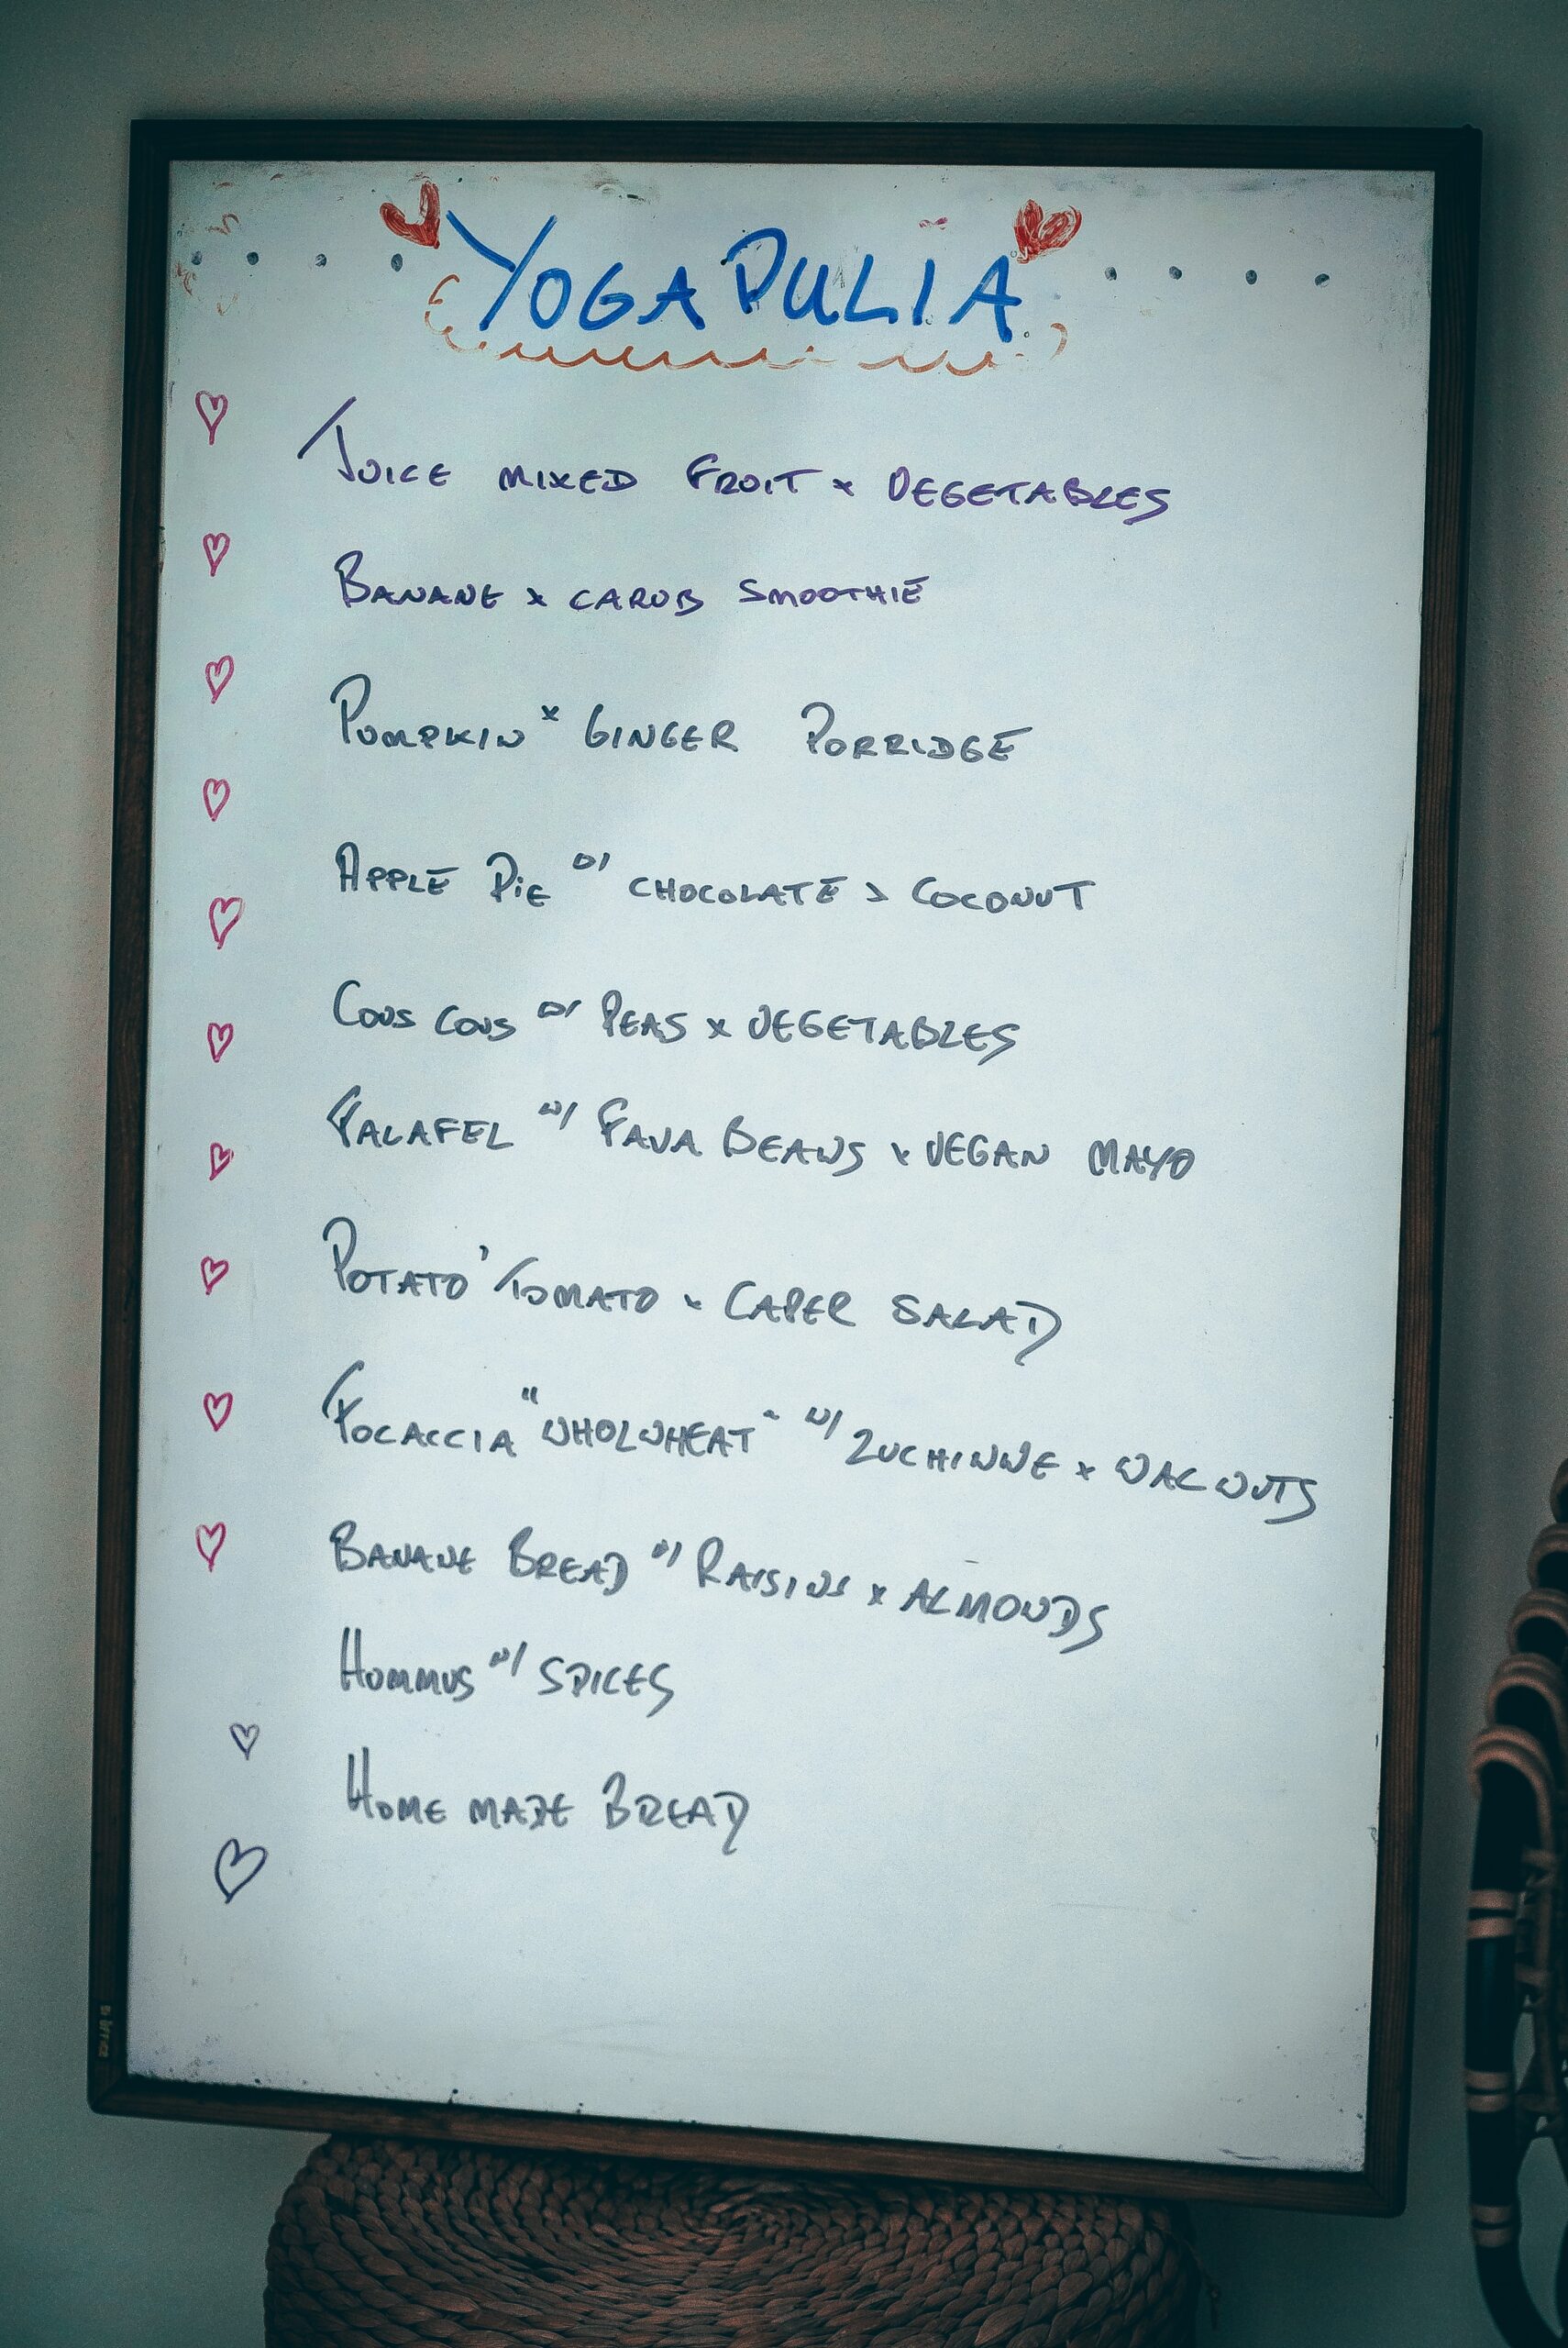 YOGAPULIA
JUICE MIXED FRUIT x VEGETABLES
BANANE x CAROB SMOOTHIE
PUMPKIN x GINGER PORRIDGE
APPLE PIE w/ CHOCOLATE x COCONUT
COUS COUS w/ PEAS x VEGETABLES
FALAFEL w/ FAVA BEANS x VEGAN MAYO
POTATO, TOMATO x CAPER SALAD
FOCACCIA "WHOLWHEAT" w/ ZUCHINNE x WALNUTS
BANANE BREAD w/ RAISINS x ALMONDS
HUMMUS w/ SPICES
HOME MADE BREAD